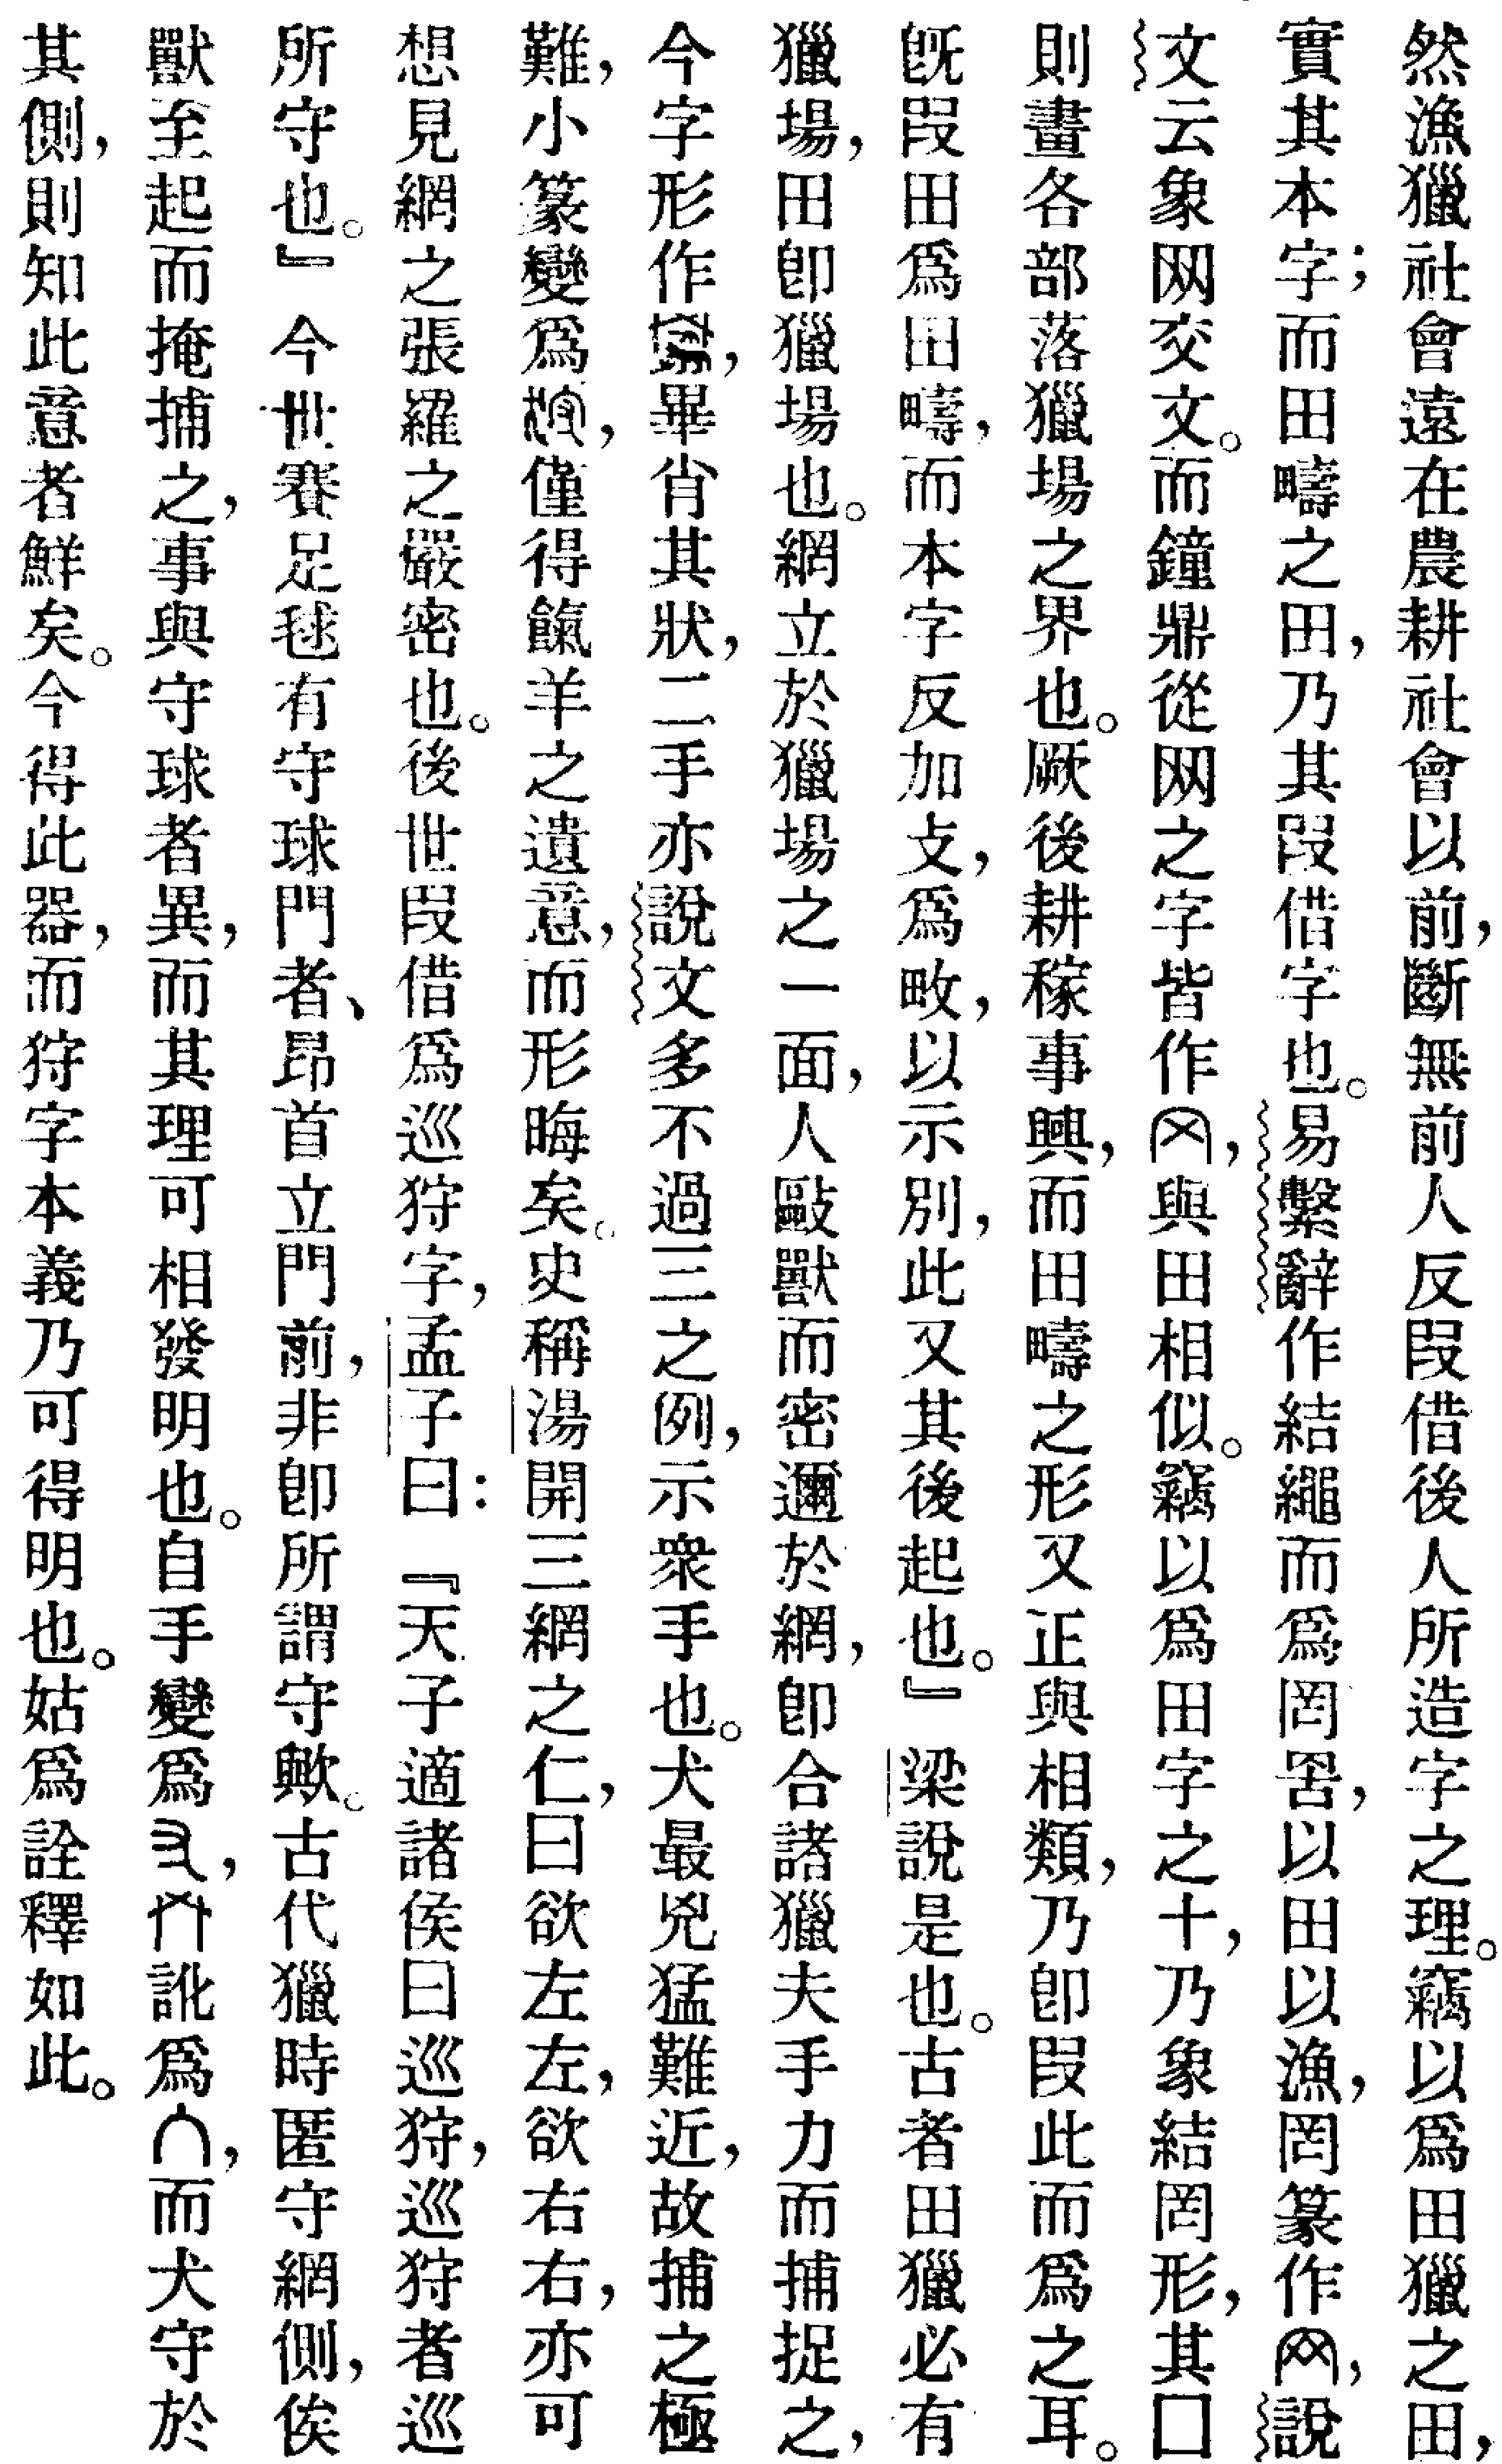 然漁獵社會遠在農耕社會以前，斷無前人反叚借後人所造字之理。竊以爲田獵之田，
實其本字；而田疇之田，乃其叚借字也。易繫辭作結繩而爲罔罟，以田以漁，罔篆作，說
文云象网交文。而鐘鼎從网之字皆作，與田相似。竊以爲田字之十，乃象結罔形，其囗
則畫各部落獵場之界也。厥後耕稼事興，而田疇之形又正與相類，乃卽叚此而爲之耳。
旣叚田爲田疇，而本字反加攴，爲畋，以示別，此又其後起也。』梁說是也。古者田獵必有
獵場，田卽獵場也。網立於獵場之一面，人敺獸而密邇於網，卽合諸獵夫手力而捕捉之，
今字形作，畢肖其狀，二手亦說文多不過三之例，示衆手也。犬最兇猛難近，故捕之極
難，小篆變爲，僅得餼羊之遺意，而形晦矣。史稱湯開三網之仁，曰欲左左，欲右右，亦可
想見網之張羅之嚴密也。後世叚借爲巡狩字，孟子曰：『天子適諸侯曰巡狩，巡狩者巡
所守也。』今世賽足毬有守球門者、昂首立門前，非卽所謂守歟。古代獵時匿守網側，俟
獸至起而掩捕之，事與守球者異，而其理可相發明也。自手變爲，訛爲，而犬守於
其側，則知此意者鮮矣。今得此器，而狩字本義乃可得明也。姑爲詮釋如此。